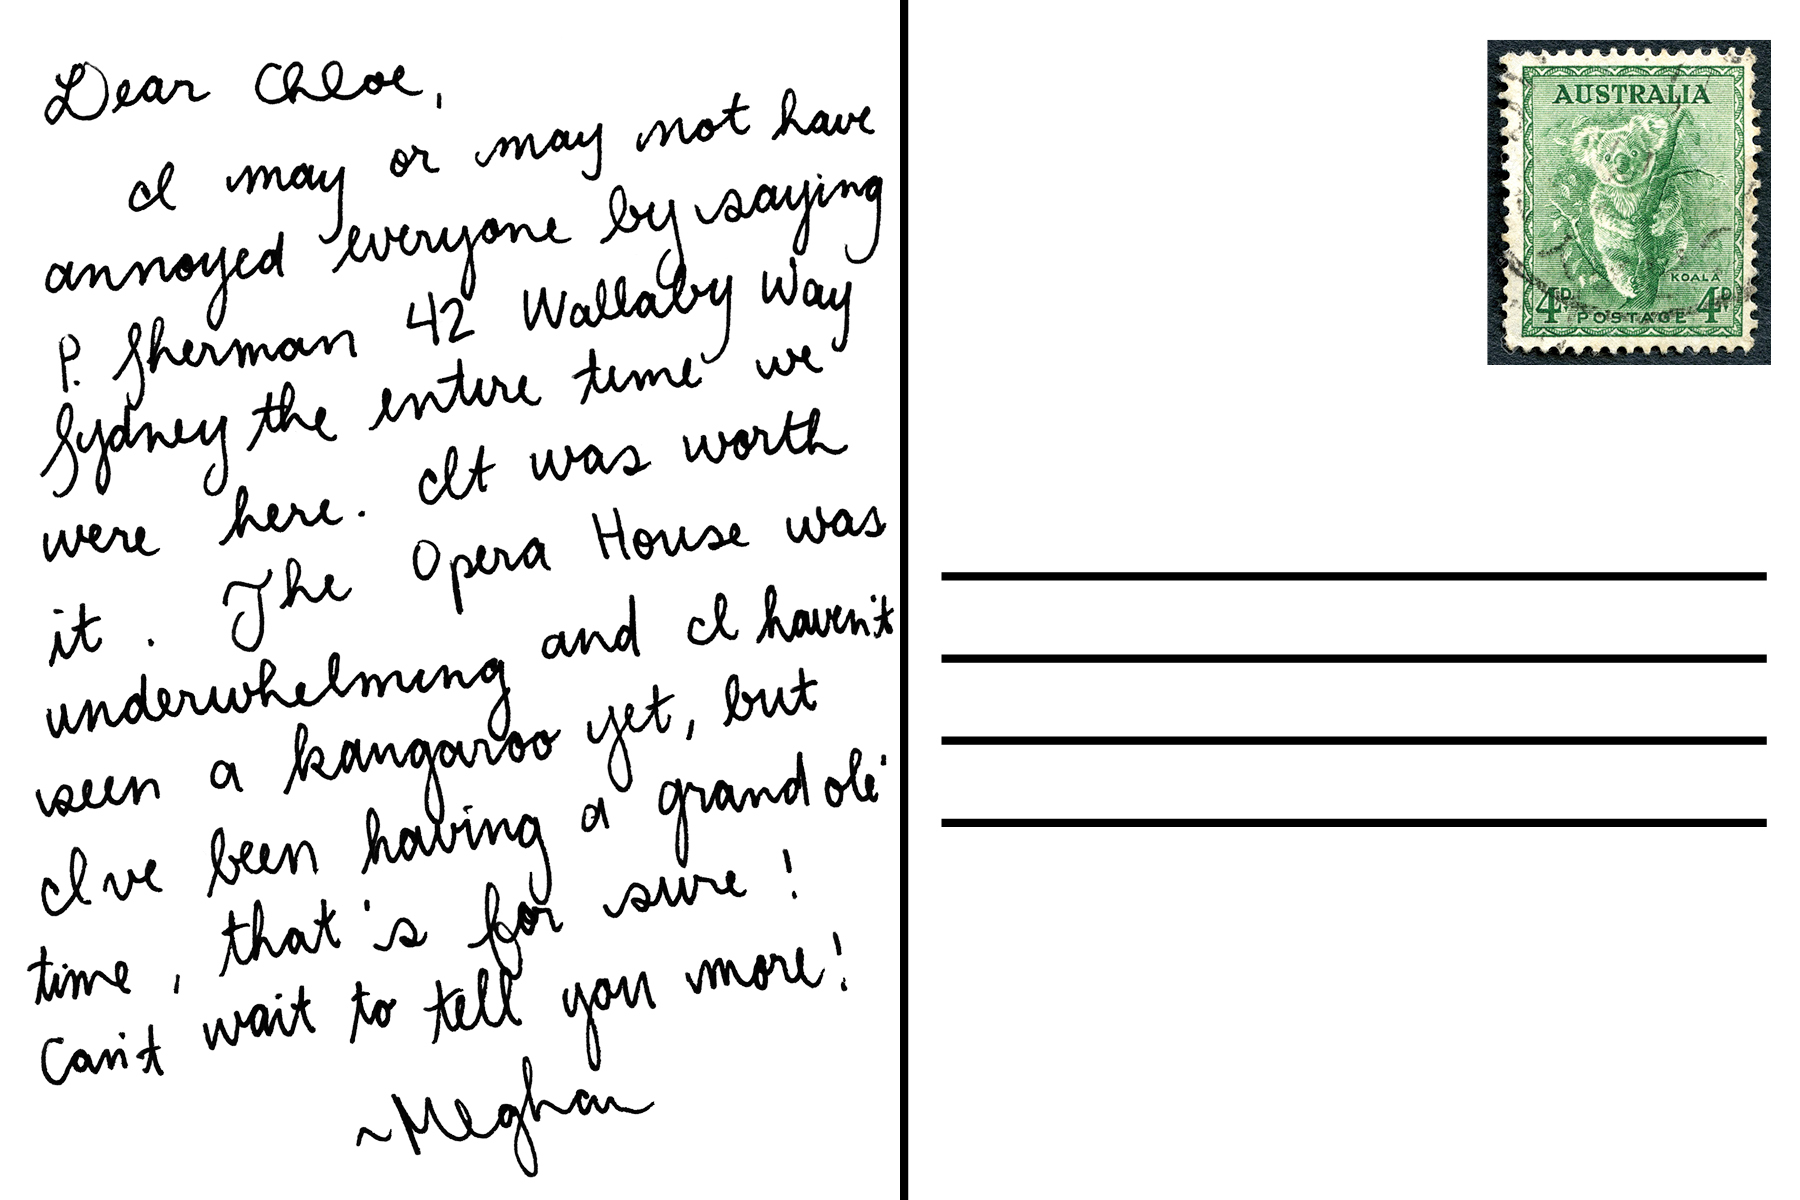 Dear Chloe,
I may or may not have
annoyed everyone by saying
P. Sherman 42 Wallaby Way
Sydney the entire time we
were here. It was worth
it. The Opera House was
underwhelming and I haven't
seen a kangaroo yet, but
I've been having a grand olé
time, that's for sure!
Can't wait to tell you more!
~Meghan
AUSTRALIA
KOALA
4D POSTAGE 4D